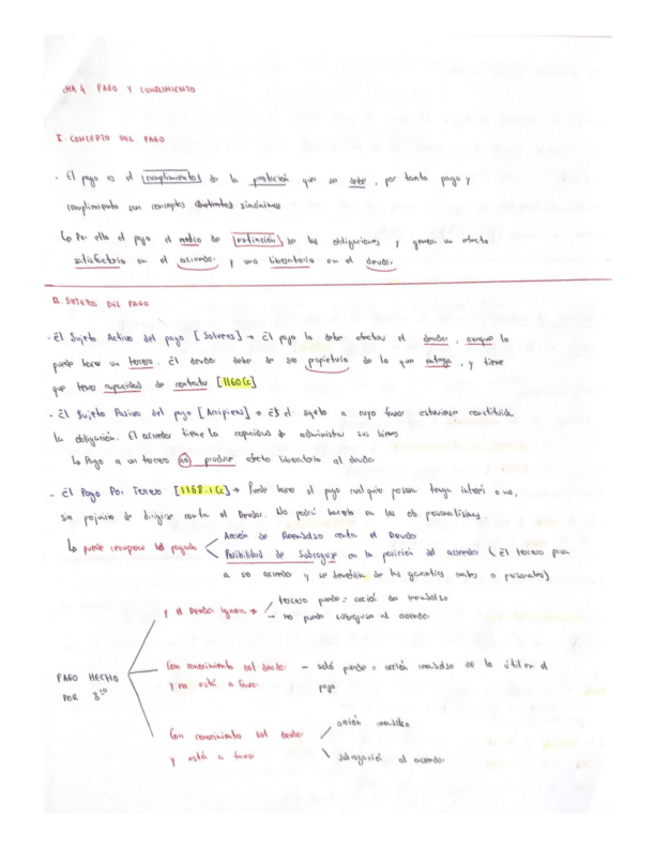 MA 4: PAGO Y CUMPLIMIENTO
I. CONCEPTO DEL PAGO
- El pago es el cumplimiento de la prestación que se debe, por tanto pago y
cumplimiento son conceptos sinónimos
↳ Por ello el pago el medio de extinción de las obligaciones y genera un efecto
satisfactorio en el acreedor y uno liberatorio en el deudor
II. SUJETOS DEL PAGO
- El Sujeto Activo del pago [Solvens] → El pago lo debe efectuar el deudor, aunque lo
puede hacer un tercero. El deudor debe de ser propietario de lo que entrega, y tiene
que tener capacidad de contratar [1160 Cc]
- El Sujeto Pasivo del pago [Accipiens] → Es el sujeto a cuyo favor estuviese constituida
la obligación. El acreedor tiene la capacidad de administrar sus bienes
↳ Pago a un tercero no produce efecto liberatorio al deudor
- El Pago Por Tercero [1158.1 Cc] → Puede hacer el pago cualquier persona tenga interés o no,
sin perjuicio de dirigirse contra el Deudor. No podrá hacerlo en las ob personalísimas.
↳ puede recuperar lo pagado < Acción de Reembolso contra el Deudor
Posibilidad de Subrogarse en la posición del acreedor (El tercero pasa
a ser acreedor y se beneficia de las garantías reales o personales)
PAGO HECHO
POR 3ro
Y el Deudor ignora → tercero puede = acción de reembolso
- no puede subrogarse al acreedor
Con conocimiento del deudor - solo puede = acción reembolso de lo útil en el
y no está a favor pago
Con conocimiento del deudor acción reembolso
y está a favor subrogación al acreedor